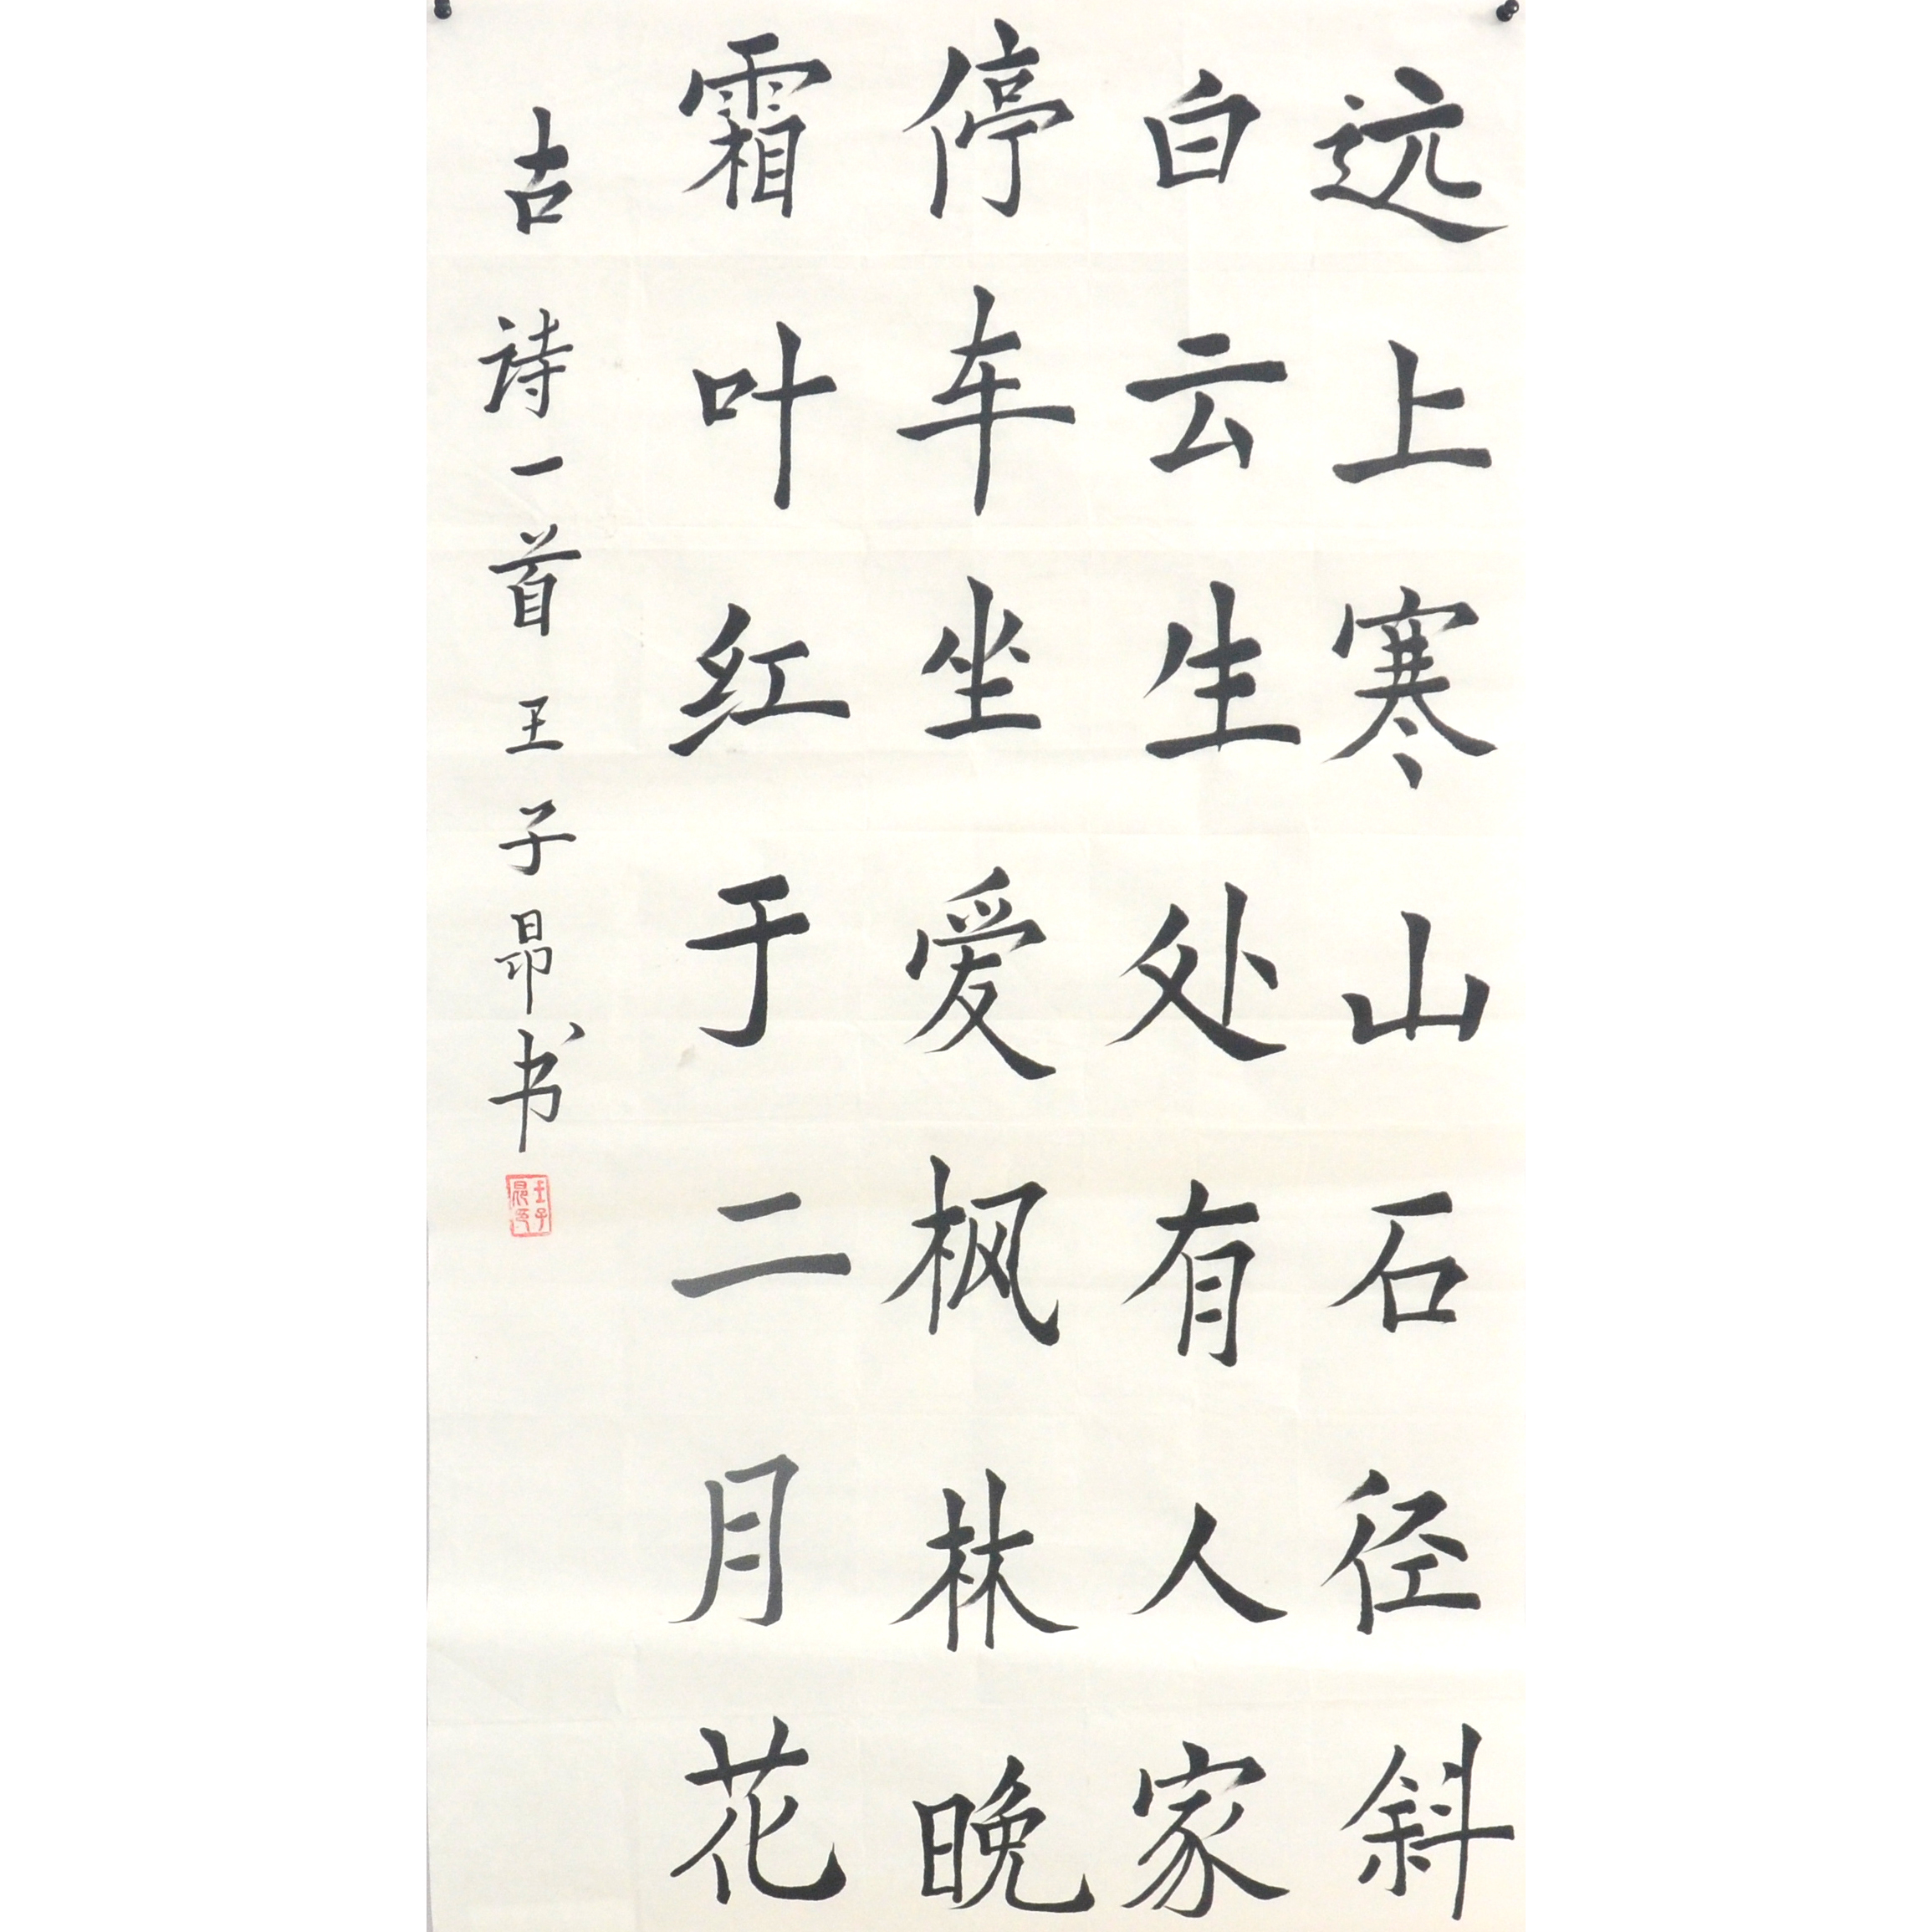 远上寒山石径斜
白云生处有人家
停车坐爱枫林晚
霜叶红于二月花
古诗一首 王子昂书
王子昂印